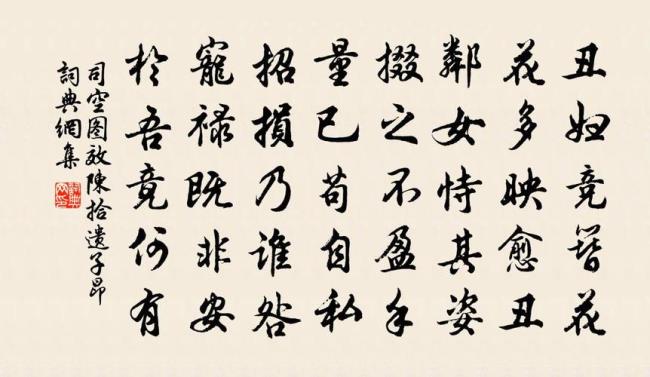 丑妇竞簪花
花多映愈丑
鄰女恃其姿
掇之不盈手
量已苟自私
招損乃谁咎
寵禄既非安
於吾竟何有
司空图效陳拾遺子昂
詞典網集